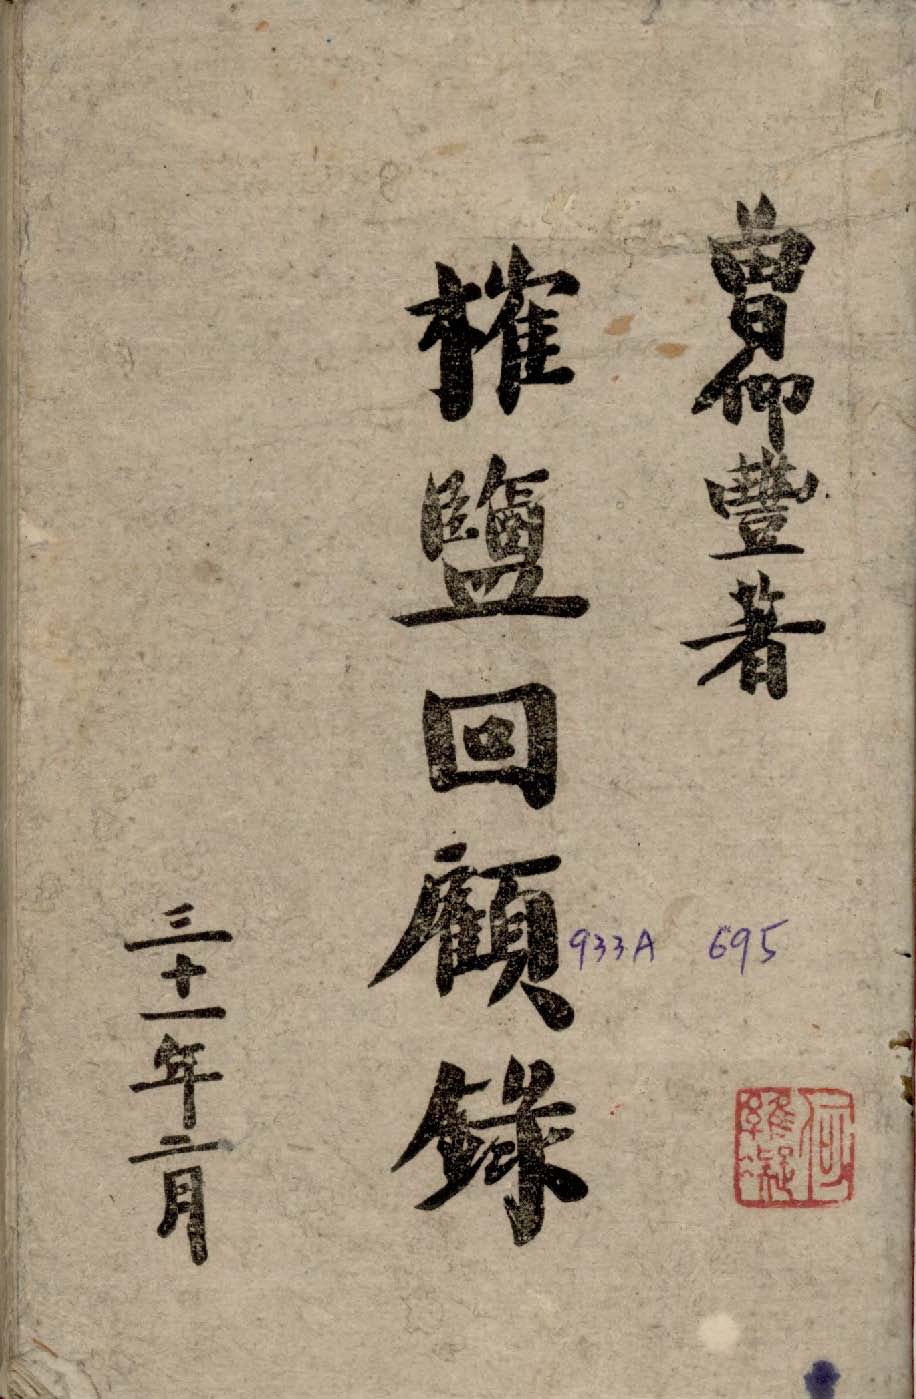 曾仰豐著
榷鹽回顧錄
933A 695
三十一年二月